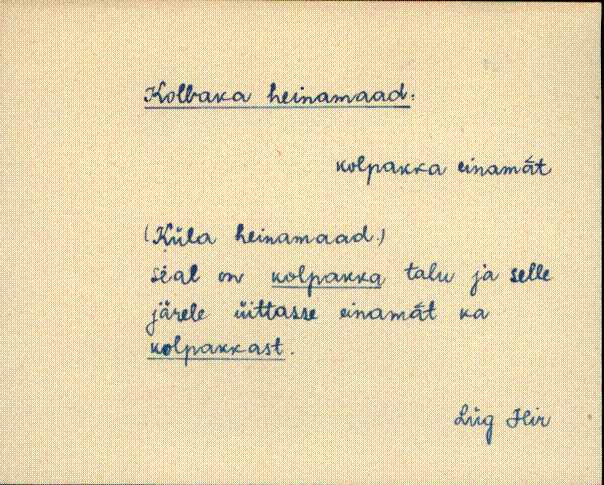 Kolbaka heinamaad.
kolpakka einamāt
(Küla heinamaad.)
sėal on kolpakka talu ja selle
järele üittasse einamāt ka
kolpakkast.
Lüg Hir